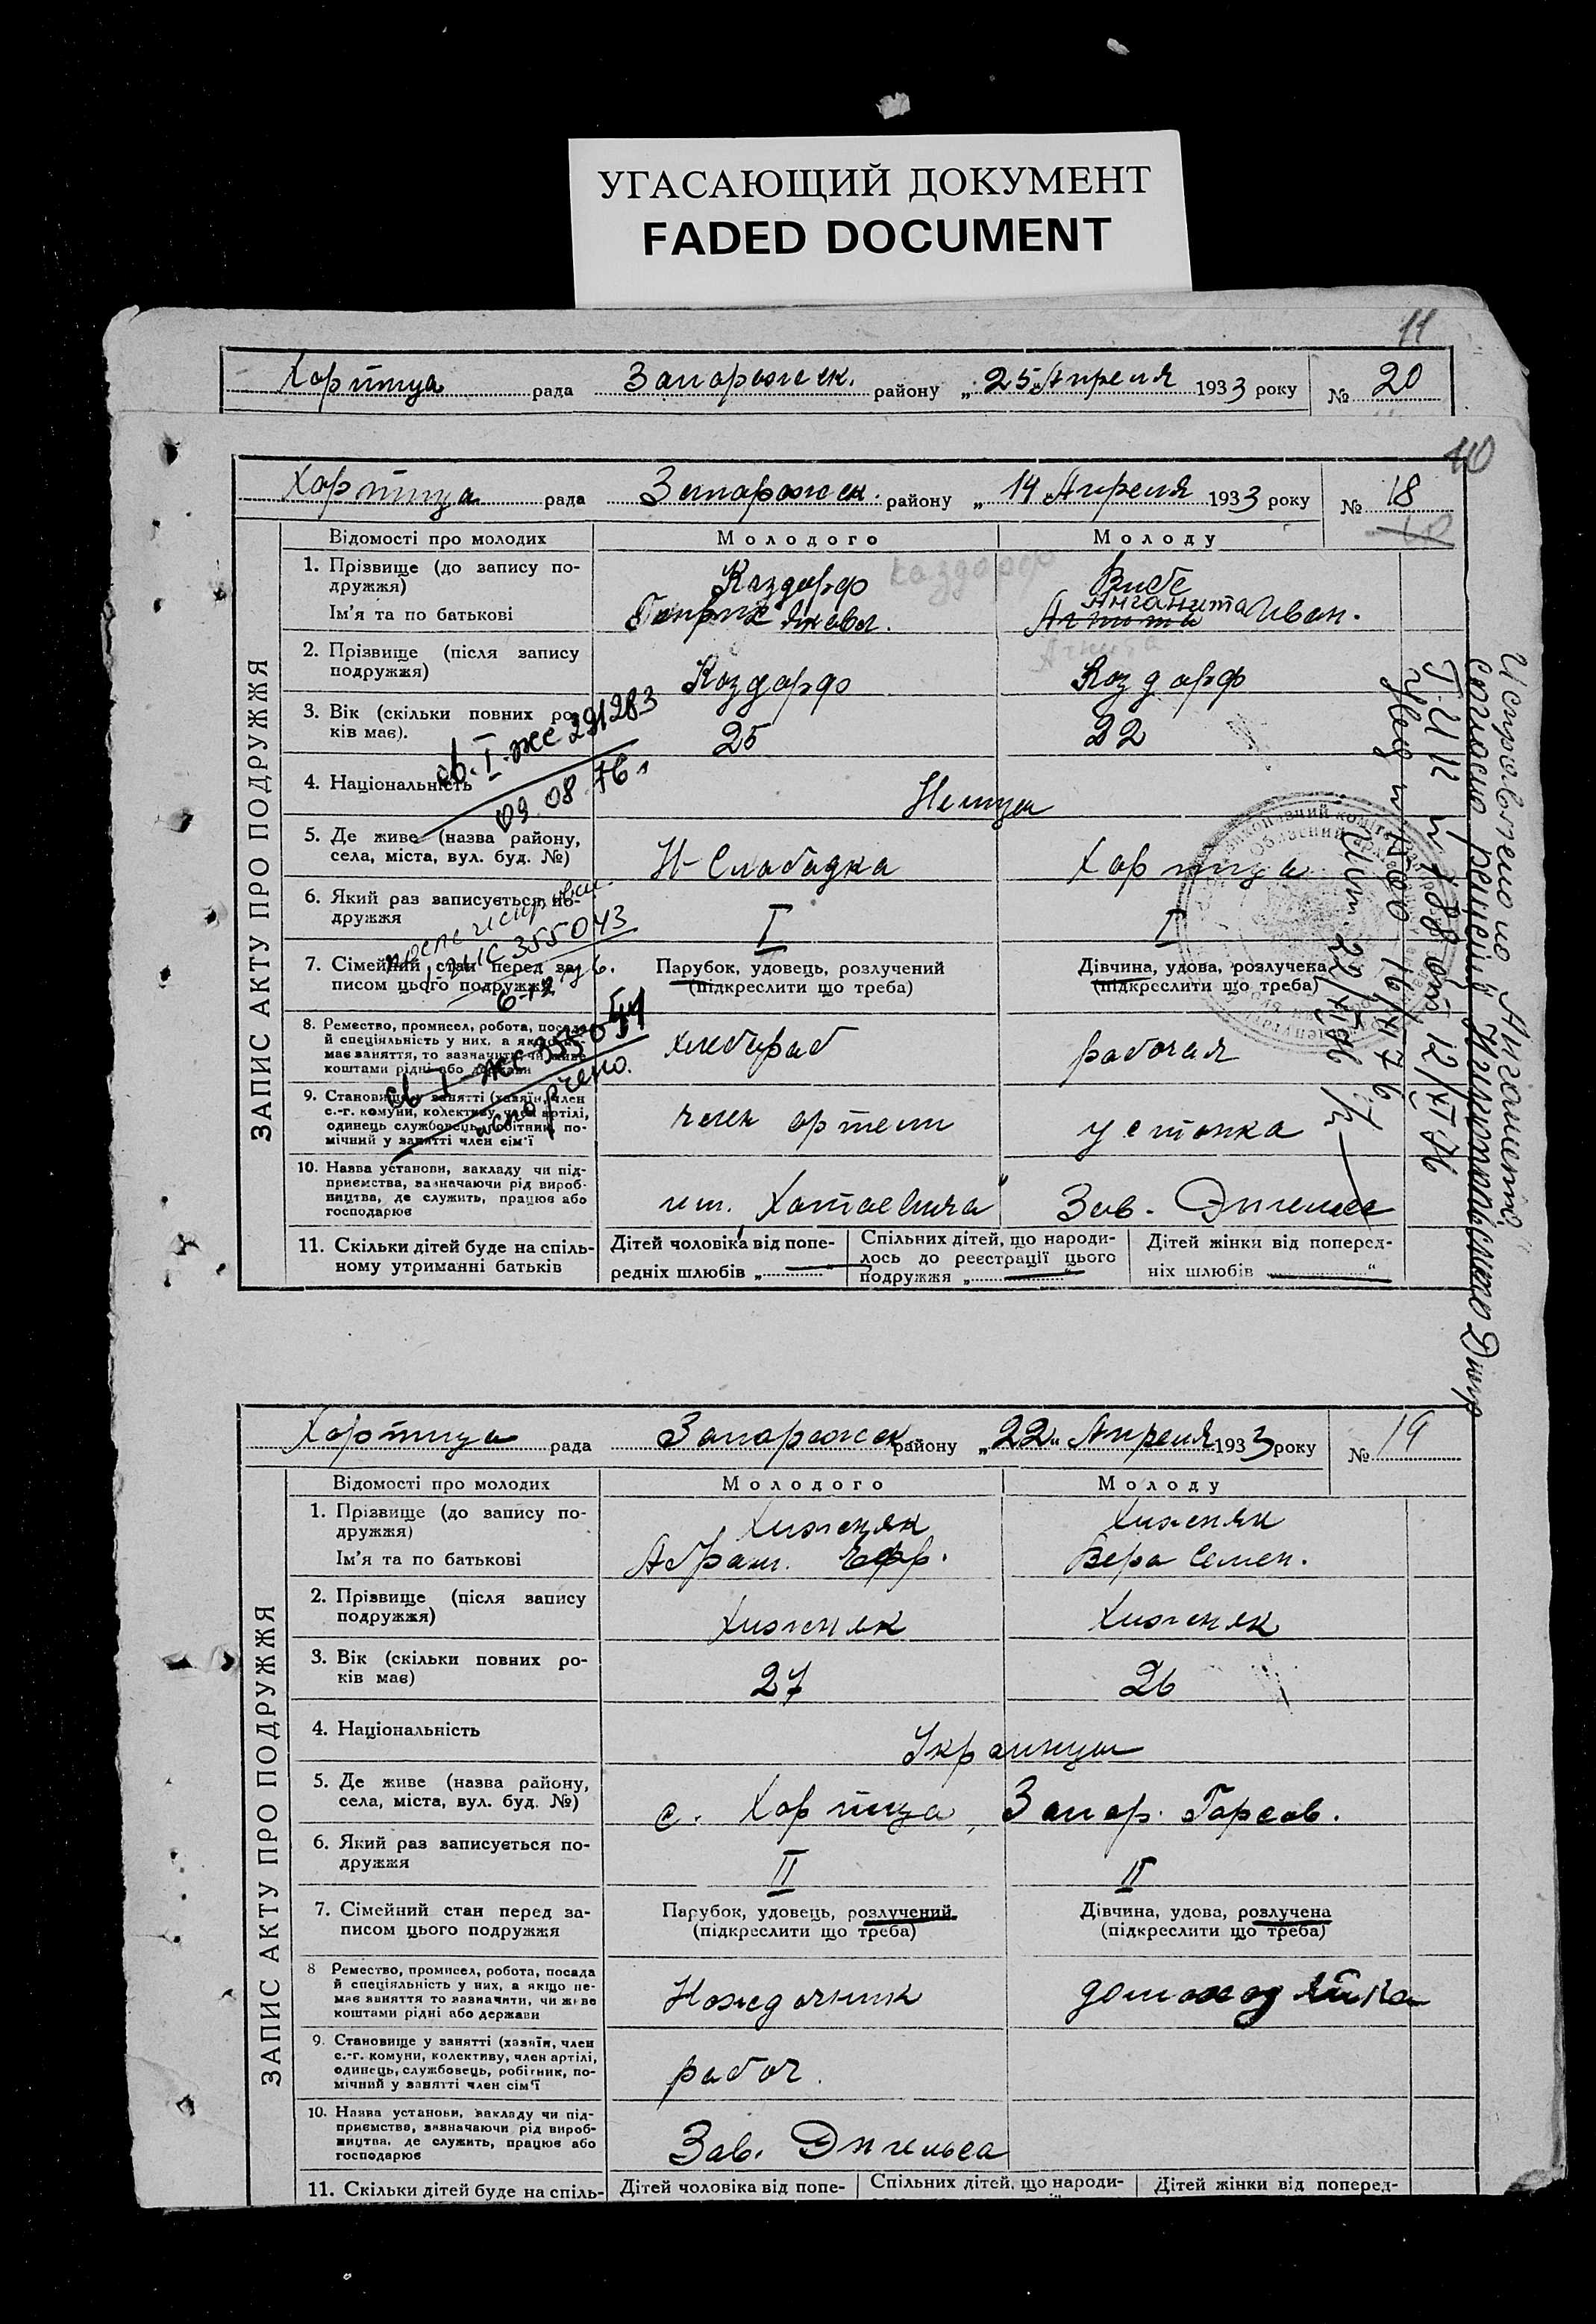 УГАСАЮЩИЙ ДОКУМЕНТ
FADED DOCUMENT
11
Хортица рада Запорожск. району „25„ Апреля 1933 року № 20
10
Хортица рада Запорожск. району „14„ Апреля 1933 року № 18
10
ЗАПИС АКТУ ПРО ПОДРУЖЖЯ
Відомості про молодих Молодого Молоду
1. Прізвище (до запису по-
дружжя)
Каздорф Каздорф Вибе
Ім'я та по батькові
Анганита Иван.
Агнита
2. Прізвище (після запису
подружжя)
Каздорф Каздорф
3. Вік (скільки повних ро-
ків має).
25 22
св. I-жс 291283
09 08 76 г
4. Національність
Немцы
5. Де живе (назва району,
села, міста, вул. буд. №)
Н-Слободка Хортица
6. Який раз записується по-
дружжя
I I
355043
7. Сімейний стан перед за-
писом цього подружжя
Парубок, удовець, розлучений Дівчина, удова, розлучена
(підкреслити що треба) (підкреслити що треба)
8. Ремество, промисел, робота, посада
й спеціяльність у них, а якщо не-
має заняття, то зазначити, чи живе
коштами рідні або держави
хлебораб рабочая
св I-жс
испорчено.
9. Становище у занятті (хазяїн, член
с.-г. комуни, колективу, член артілі,
одинець службовець, робітник, по-
мічний у занятті член сім'ї
член артели
10. Назва установи, закладу чи під-
приємства, зазначаючи рід вироб-
ництва, де служить, працює або
господарює
им. Хатаевича Зав. Энгельса
11. Скільки дітей буде на спіль-
ному утриманні батьків
Дітей чоловіка від попе-
редніх шлюбів „ “
Спільних дітей, що народи-
лось до реєстрації цього
подружжя „ “
Дітей жінки від поперед-
ніх шлюбів “
Исправлено на „Ангониту“
согласно
от 12/XI 76
Хортица рада Запорожск району „22„ Апреля 1933 року № 19
ЗАПИС АКТУ ПРО ПОДРУЖЖЯ
Відомості про молодих Молодого Молоду
1. Прізвище (до запису по-
дружжя)
Хижняк Хижняк
Ім'я та по батькові
Абрам. Ефр. Вера Семен.
2. Прізвище (після запису
подружжя)
Хижняк Хижняк
3. Вік (скільки повних ро-
ків має)
27 26
4. Національність
Украинцы
5. Де живе (назва району,
села, міста, вул. буд. №)
с. Хортица, Запор. Горсов.
6. Який раз записується по-
дружжя
II II
7. Сімейний стан перед за-
писом цього подружжя
Парубок, удовець, розлучений Дівчина, удова, розлучена
(підкреслити що треба) (підкреслити що треба)
8 Ремество, промисел, робота, посада
й спеціяльність у них, а якщо не-
має заняття то зазначити, чи живе
коштами рідні або держави
Наждачник
9. Становище у занятті (хазяїн, член
с.-г. комуни, колективу, член артілі,
одинець, службовець, робітник, по-
мічний у занятті член сім'ї
рабоч.
10. Назва установи, закладу чи під-
приємства, зазначаючи рід вироб-
ництва, де служить, працює або
господарює
Зав. Энгельса
11. Скільки дітей буде на спіль- Дітей чоловіка від попе- Спільних дітей, що народи- Дітей жінки від поперед-